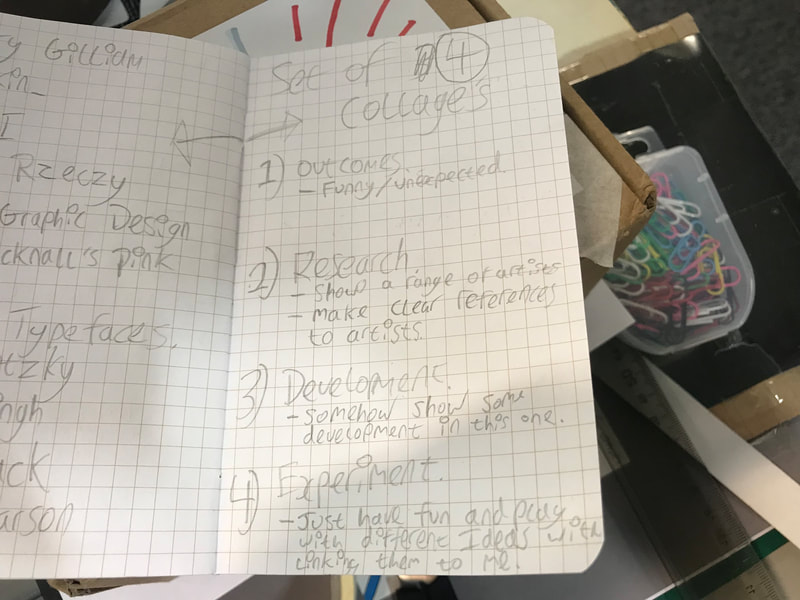 Gillian
in_
I
Rzeczy
Graphic Design
cknall's pink
Typefaces.
tzky
ingh
ack
arson
Set of 4
Collage's
1) Outcomes
- Funny/unexpected
2) Research
- Show a range of artists
- make clear references
to artists.
3) Development.
- somehow show some
development in this one.
4) Experiment.
- Just have fun and play
with different Ideas with
linking them to me.